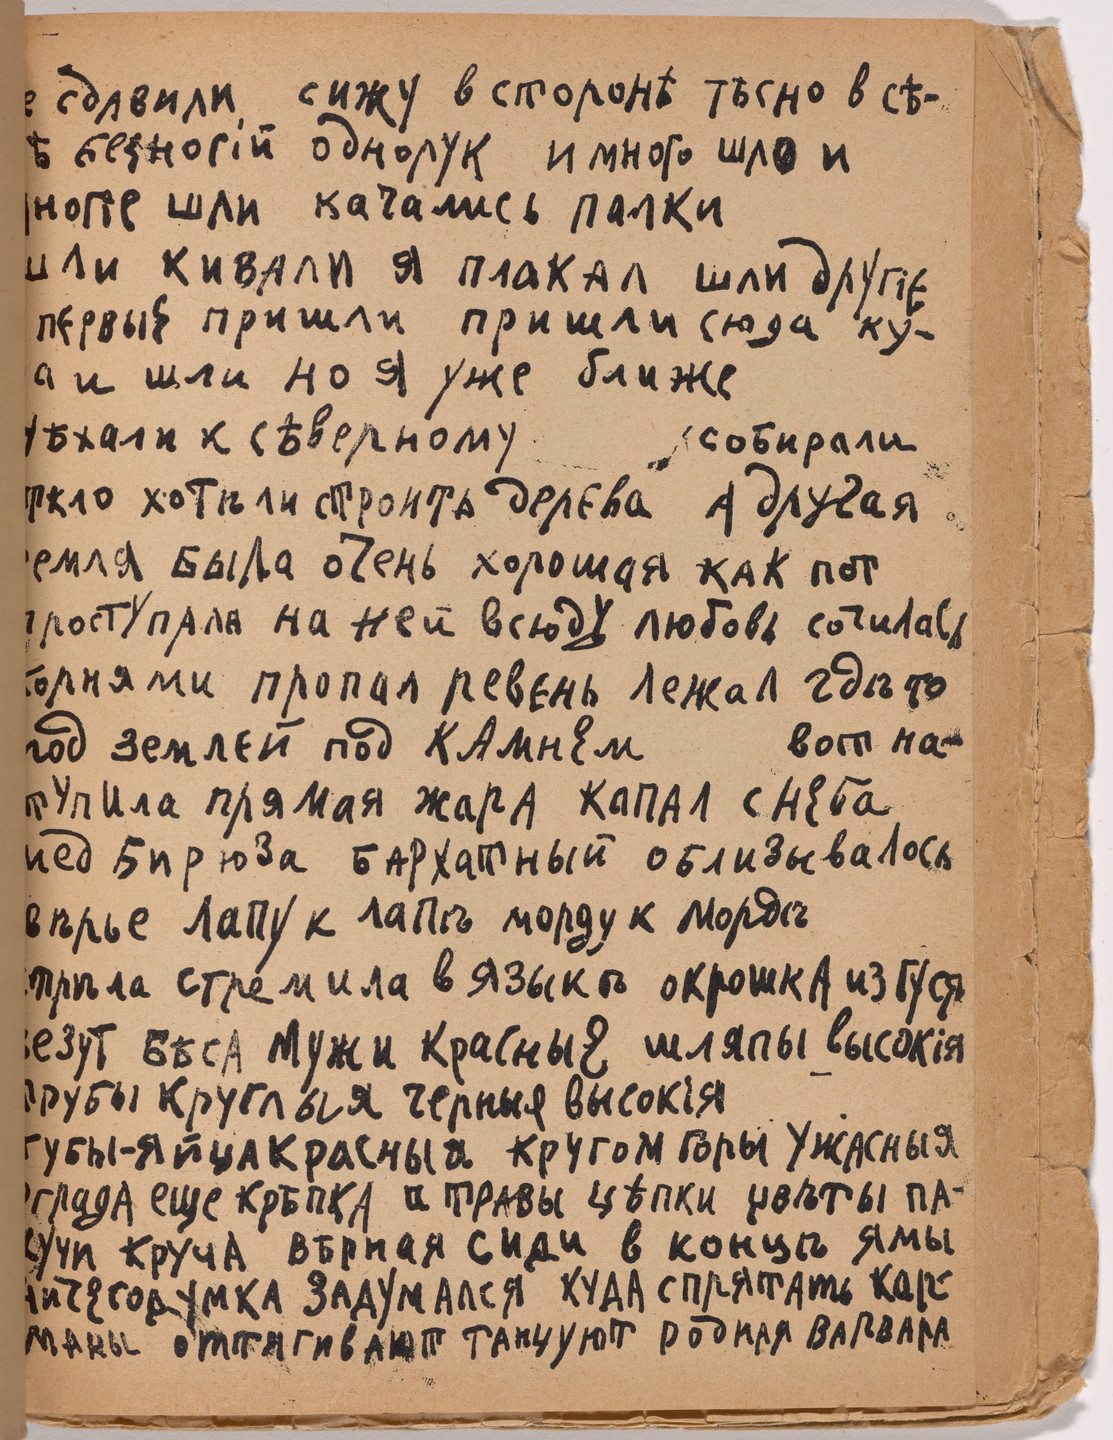 е сдавили, сижу в сторонѣ тѣсно в сѣ-
ѣ безногій однорук и много шло и
ногіе шли качались палки
шли кивали я плакал шли другіе
первые пришли пришли сюда ку-
а и шли но я уже ближе
уѣхали к сѣверному собирали
ткло хотѣли строить дерева А другая
емля была очень хорошая как пот
проступала на ней всюду любовь сочилась
корнями пропал ревень лежал гдѣ то
под землей под камнем вот на-
тупила прямая жара капал с неба
мед бирюза бархатный облизывалось
вѣрье лапу к лапѣ морду к мордѣ
трѣла стремила в языкѣ окрошка из гуся
везут бѣса мужи красные шляпы высокія
трубы круглыя черныя высокія
губы-яйца красныя кругом горы ужасныя
ограда еще крѣпка и травы цѣпки цвѣты па-
кучи круча вѣрная сиди в концѣ ямы
ничегодумка задумался куда спрятать кар-
маны оттягивают танцуют родная варвара